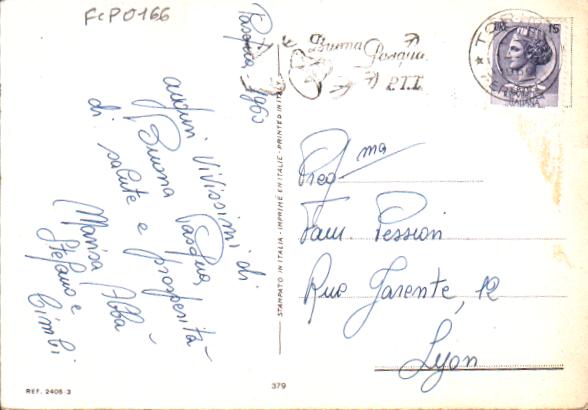 FcP0166
Pasqua 1963
auguri vivissimi di
Buona Pasqua,
di salute e prosperità
Marisa Abbà
Stefano e
Bimbi
Buona
Pasqua
P.T.T.
TORINO
FERROVIA
LIRE 15
ITALIANA
STAMPATO IN ITALIA - IMPRIMÉ EN ITALIE - PRINTED IN ITALY
Preg ma
Fam. Pession
Rue Garente, 12
Lyon
REF. 2406-3
379